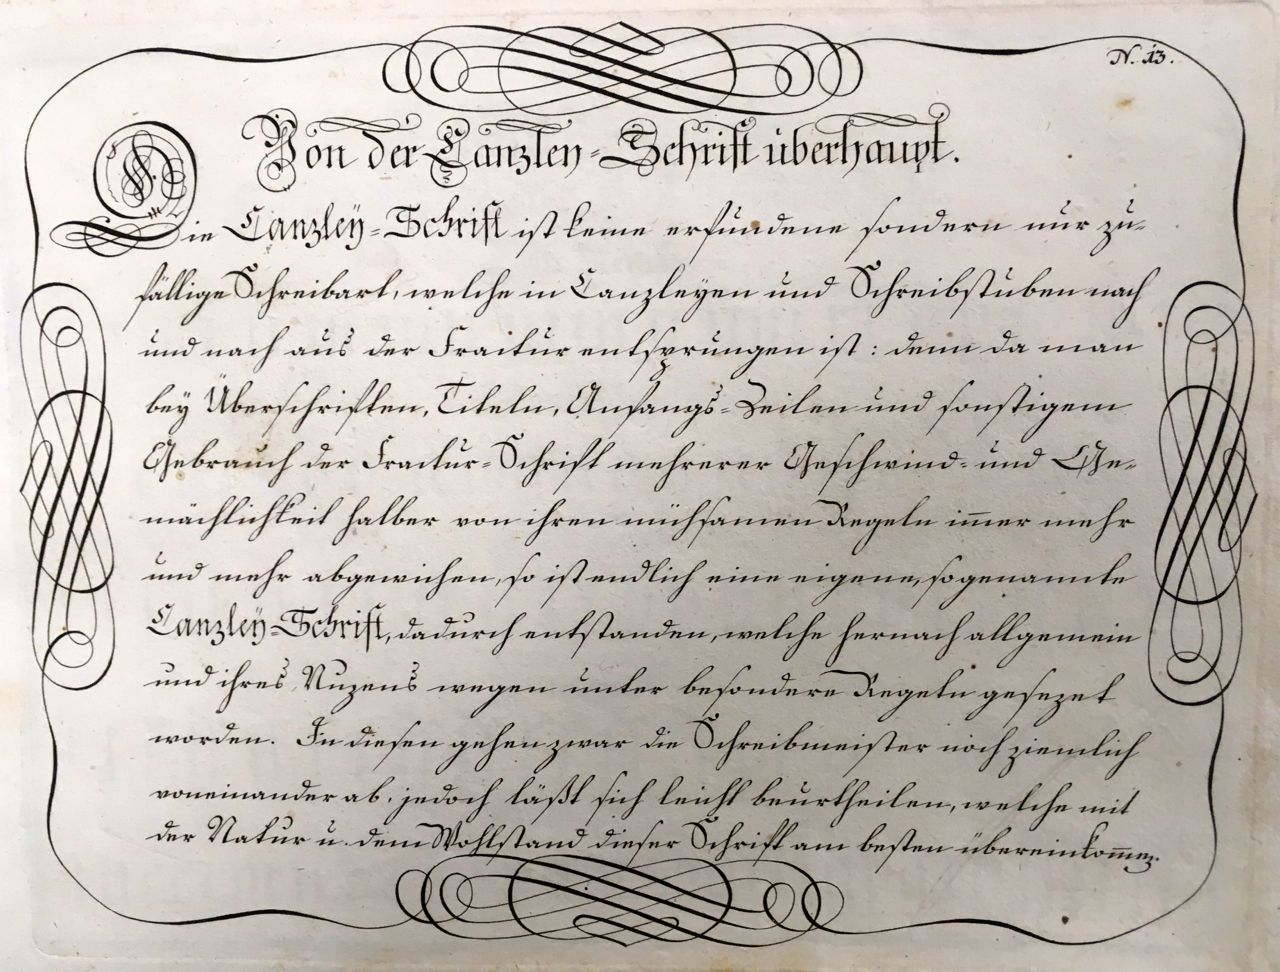 N. 13.
Von der Canzley-Schrift überhaupt.
Die Canzley-Schrift ist keine erfundene sondern nur zu-
fällige Schreibart, welche in Canzleyen und Schreibstuben nach
und nach aus der Fractur entsprungen ist: denn da man
bey Überschriften, Titeln, Anfangs-Zeilen und sonstigem
Gebrauch der Fractur-Schrift mehrerer Geschwind- und Ge-
mächlichkeit halber von ihren mühsamen Regeln im̅er mehr
und mehr abgewichen, so ist endlich eine eigene, sogenannte
Canzley-Schrift, dadurch entstanden, welche hernach allgemein
und ihres Nuzens wegen unter besondere Regeln gesezet
worden. In diesen gehen zwar die Schreibmeister noch ziemlich
voneinander ab, jedoch läßt sich leicht beurtheilen, welche mit
der Natur u. dem Wohlstand dieser Schrift am besten übereinkom̅en.